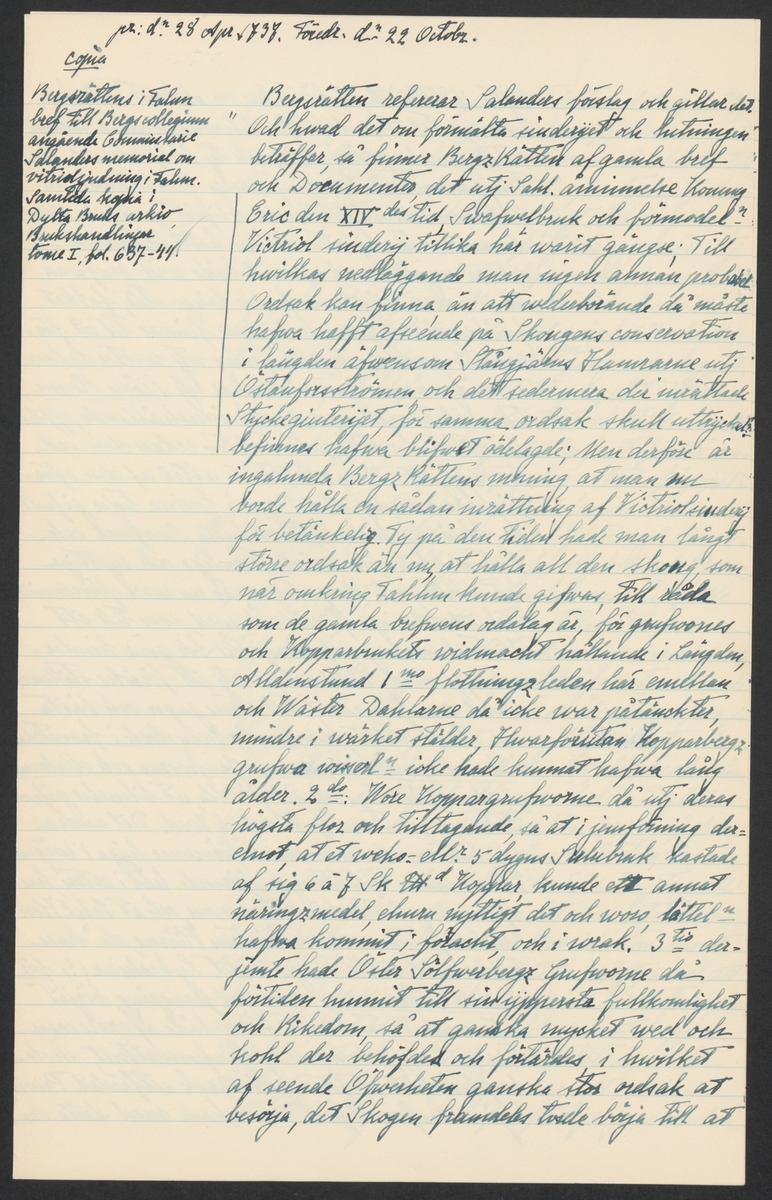 pr: d:n 28 Apr 1737. Föredr. d:n 22 Octobr.
copia
Bergsrättens i Falun
bref till Bergscollegium
angående Commissarie
Salanders memorial om
vitriolsjudning i Falun.
Samtida kopia i
Dylta Bruks arkiv,
Brukshandlingar
tome I, fol. 637-41.
Bergsrätten refererar Salanders förslag och gillar det.
" Och hwad det om förmälta sinderijet och lutningen
beträffar så finner BergzRätten af gamla bref
och Documenter, det utj Sahl. åminnelse Konung
Eric den XIV des tid, Swafwelbruk och förmodel:n
Victriol sinderij tillika här warit gängse; Till
hwilkas nedläggande man ingen annan probabel
Ordsak kan finna, än att wederbörande då måste
hafwa hafft afseende på Skougens conservation
i längden äfwensom Stångjärns Hamrarne utj
Östanforsströmen och det sedermera der inrättade
Styckegiuterijet, för samma ordsak skull
befinnes hafwa blifwet ödelagde; Men derföre är
ingalunda BergzRättens mening, at man nu
borde hålla en sådan inrättning af Victriolsinderij
för betänkelig. Ty på den tiden hade man långt
större ordsak än nu, at hålla all den skoug, som
när omkring Fahlun kunde gifwas, till råda
som de gamla brefwens ordalag är, för grufwones
och Kopparbrukets widmacht hållande i Längden,
Alldenstund 1mo flottningzleden här emellan
och Wäster Dahlarne då icke war påtänckter,
mindre i wärket stälder, Hwarförutan Kopparbergz
grufwa wisserl:n icke hade kunnat hafwa lång
ålder. 2do: Wore Koppargrufworne då utj deras
högsta flor och tilltagande, så at i jemföring der=
emot, at et weko= ell:r 5 dygns Sulubruk kastade
af sig 6 à 7 Sk tt:d Koppar, kunde ett annat
näringzmedel, ehuru nyttigt det och woro, lättel:n
hafwa kommit i föracht, och i wrak. 3tio der=
jemte hade Öster Sölfwerbergz Grufworne då
förtiden hunnit till sin ypperste fullkomlighet
och Rikedom, så at ganska mycket wed och
kohl der behöfdes och förtärdes, i hwilket
af seende Öfwerheten ganska stor ordsak at
besörja, det Skogen framdeles torde börja till at